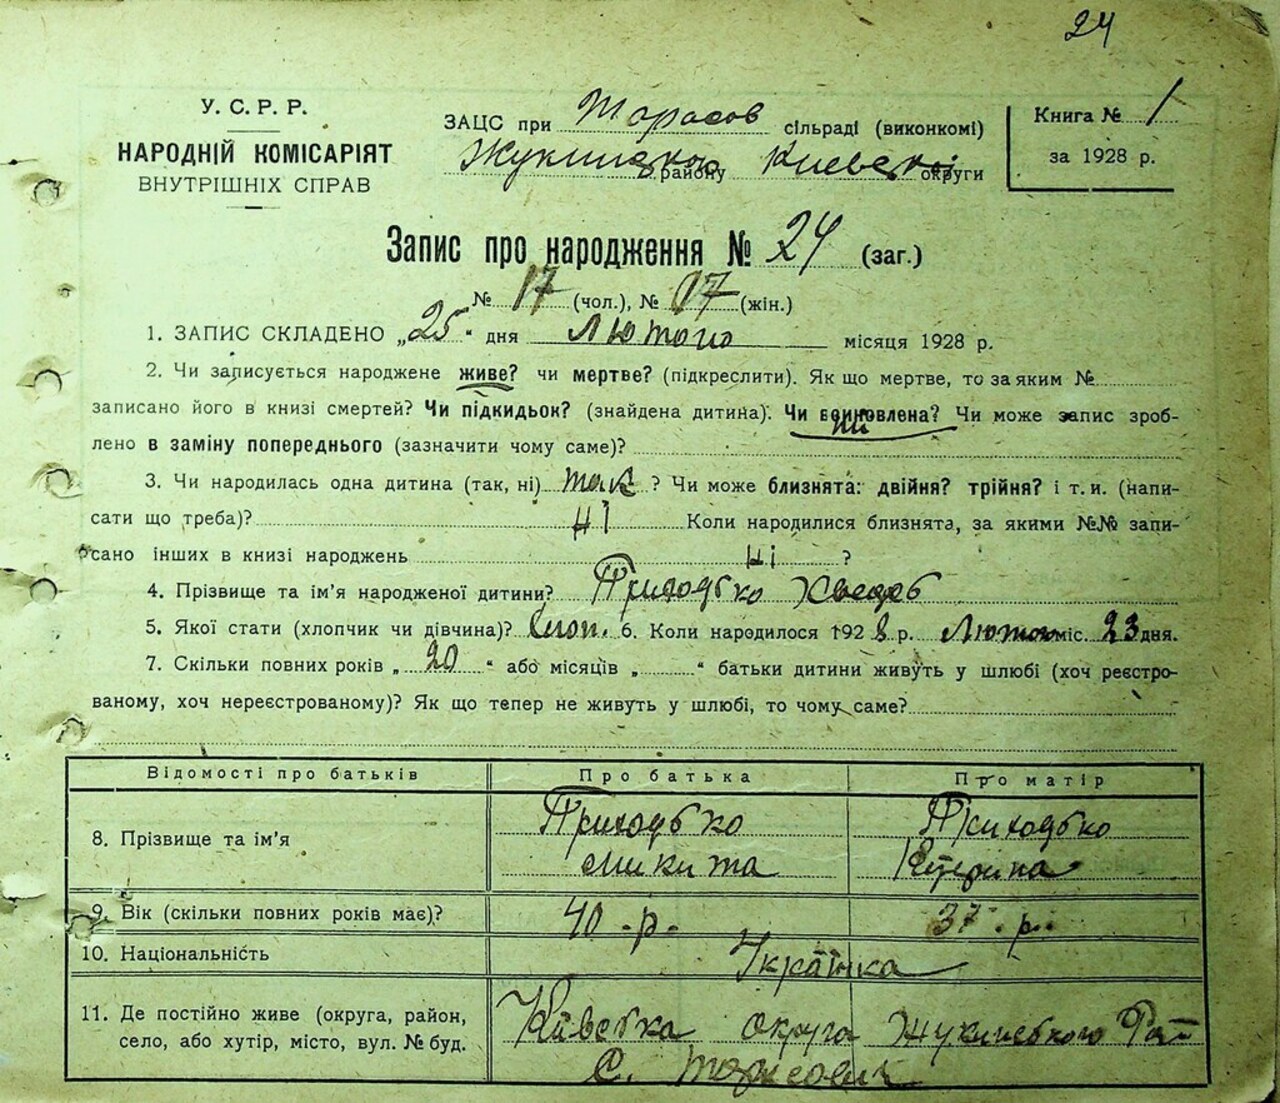 24
У. С. Р. Р.
НАРОДНІЙ КОМІСАРІЯТ
ВНУТРІШНІХ СПРАВ
ЗАЦС при Тарасов сільраді (виконкомі)
району округи
Книга № 1
за 1928 р.
Запис про народження № 24 (заг.)
№ 17 (чол.), № 07 (жін.)
1. ЗАПИС СКЛАДЕНО „25“ дня Лютого місяця 1928 р.
2. Чи записується народжене живе? чи мертве? (підкреслити). Як що мертве, то за яким №
записано його в книзі смертей? Чи підкидьок? (знайдена дитина). Чи вииновлена? Чи може запис зроб-
лено в заміну попереднього (зазначити чому саме)?
3. Чи народилась одна дитина (так, ні) так ? Чи може близнята: двійня? трійня? і т. и. (напи-
сати що треба)? Ні Коли народилися близнята, за якими №№ запи-
сано інших в книзі народжень Ні ?
4. Прізвище та ім'я народженої дитини? Приходько Хведеб
5. Якої стати (хлопчик чи дівчина)? Хлоп. 6. Коли народилося 1928 р. Лютого міс. 23 дня.
7. Скільки повних років „20“ або місяців „ “ батьки дитини живуть у шлюбі (хоч реєстро-
ваному, хоч нереєстрованому)? Як що тепер не живуть у шлюбі, то чому саме?
Відомості про батьків Про батька Про матір
8. Прізвище та ім'я Приходько Микита Приходько Катерина
9. Вік (скільки повних років має)? 40 р. 37 р.
10. Національність Українка
11. Де постійно живе (округа, район, Київська округа Жукинського Рай
село, або хутір, місто, вул. № буд. С. Тарасовичі